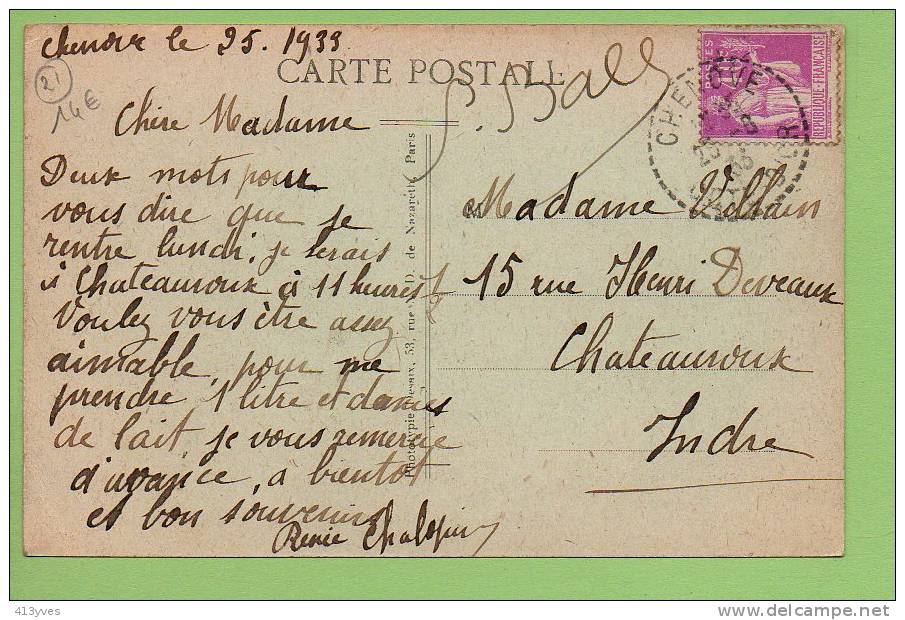 Chenove le 25. 1933
21
14€
CARTE POSTALE
Chère Madame
Deux mots pour
vous dire que je
rentre lundi, je serais
à Chateauroux à 11 heures 1/2
Voulez vous être assez
aimable, pour me
prendre 1 litre et demies
de lait, je vous remercie
d'avance, a bientot
et bon souvenirs
Renée
Phototypie Desaix, 53, rue N.-D. de Nazareth, Paris
POSTES
REPUBLIQUE FRANÇAISE
CHENOVE
Madame Villain
15 rue Henri Deveaux
Chateauroux
Indre
413yves
delcampe.net